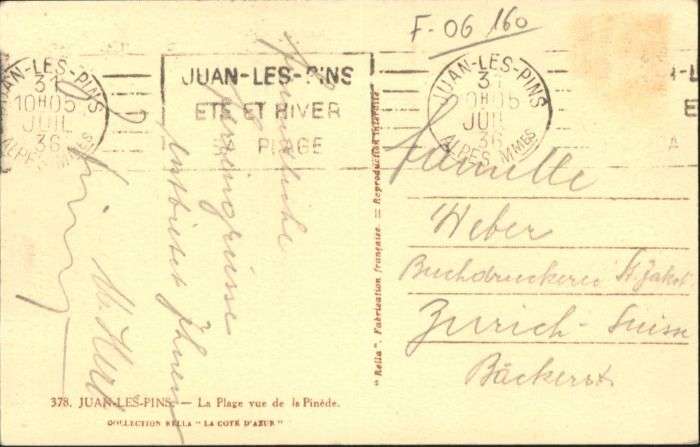 F-06 160
JUAN-LES-PINS
31
10H05
JUIL
36
ALPES MMES
JUAN-LES-PINS
ETE ET HIVER
PLAGE
JUAN-LES-PINS
31
10H05
JUIL
36
ALPES MMES
Freundliche
Feriengrüsse
entbietet Ihnen
Famille
Weber
Buchdruckerei St. Jakob
Zurich - Suisse
Bäckerst.
"Rella". Fabrication française. = Reproduction interdite
378. JUAN-LES-PINS. — La Plage vue de la Pinède.
COLLECTION RELLA "LA COTE D'AZUR"